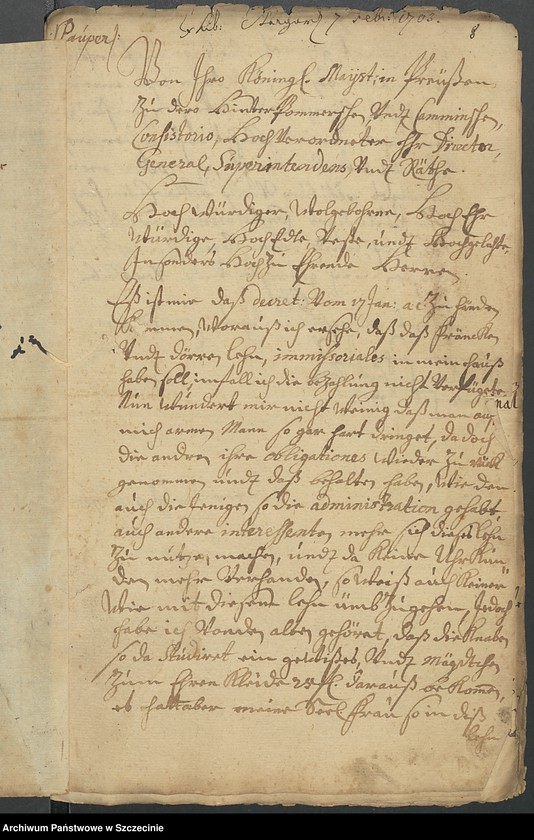 Pauper:
7 Febr: 1705.
8
Von Ihro Königl. Mayst: in Preußen
Zu dero Hinter Pommerschen Undt Camminschen
Consistorio, Hoch Verordneter Hr Director,
General, Superintendens, Undt Räthe.
Hoch Würdiger, Wolgebohrne, Hoch Ehr
Würdige, Hoch Edle, Veste, undt Hochgelahrte,
Insonders Hoch zu Ehrende Herren.
Eß ist mir daß decret: Vom 17 Jan: a.c. Zu handen
kommen, Worauß ich ersehe, daß daß
Undt dörren Lehn, immissoriales in mein Hauß
haben soll, imfall ich die bezahlung nicht Verfügete
Nun Wundert mir nicht Wenig daß man auf
mich armen Mann so gar hart dringet, da doch
die andren ihre obligationes Wieder Zu rück
genommen undt daß behalten haben, Wie dan
auch die Jenigen so die administration gehabt
auch andere interessenten mehr sich dieses Lehn
Zu nutze machen, undt da keine Uhrkun
den mehr Vorhanden, so Weiß auch keiner
Wie mit diesem Lehn umb Zugehen, Jedoch
habe ich Von den alten gehöret, daß die Knaben
so da Studiret ein gewißes, Undt Mägdtchen
Zum Ehren Kleide 25 fl. darauß bekomen,
es hatt aber meine Seel. Frau so in diß
Lehn
Archiwum Państwowe w Szczecinie